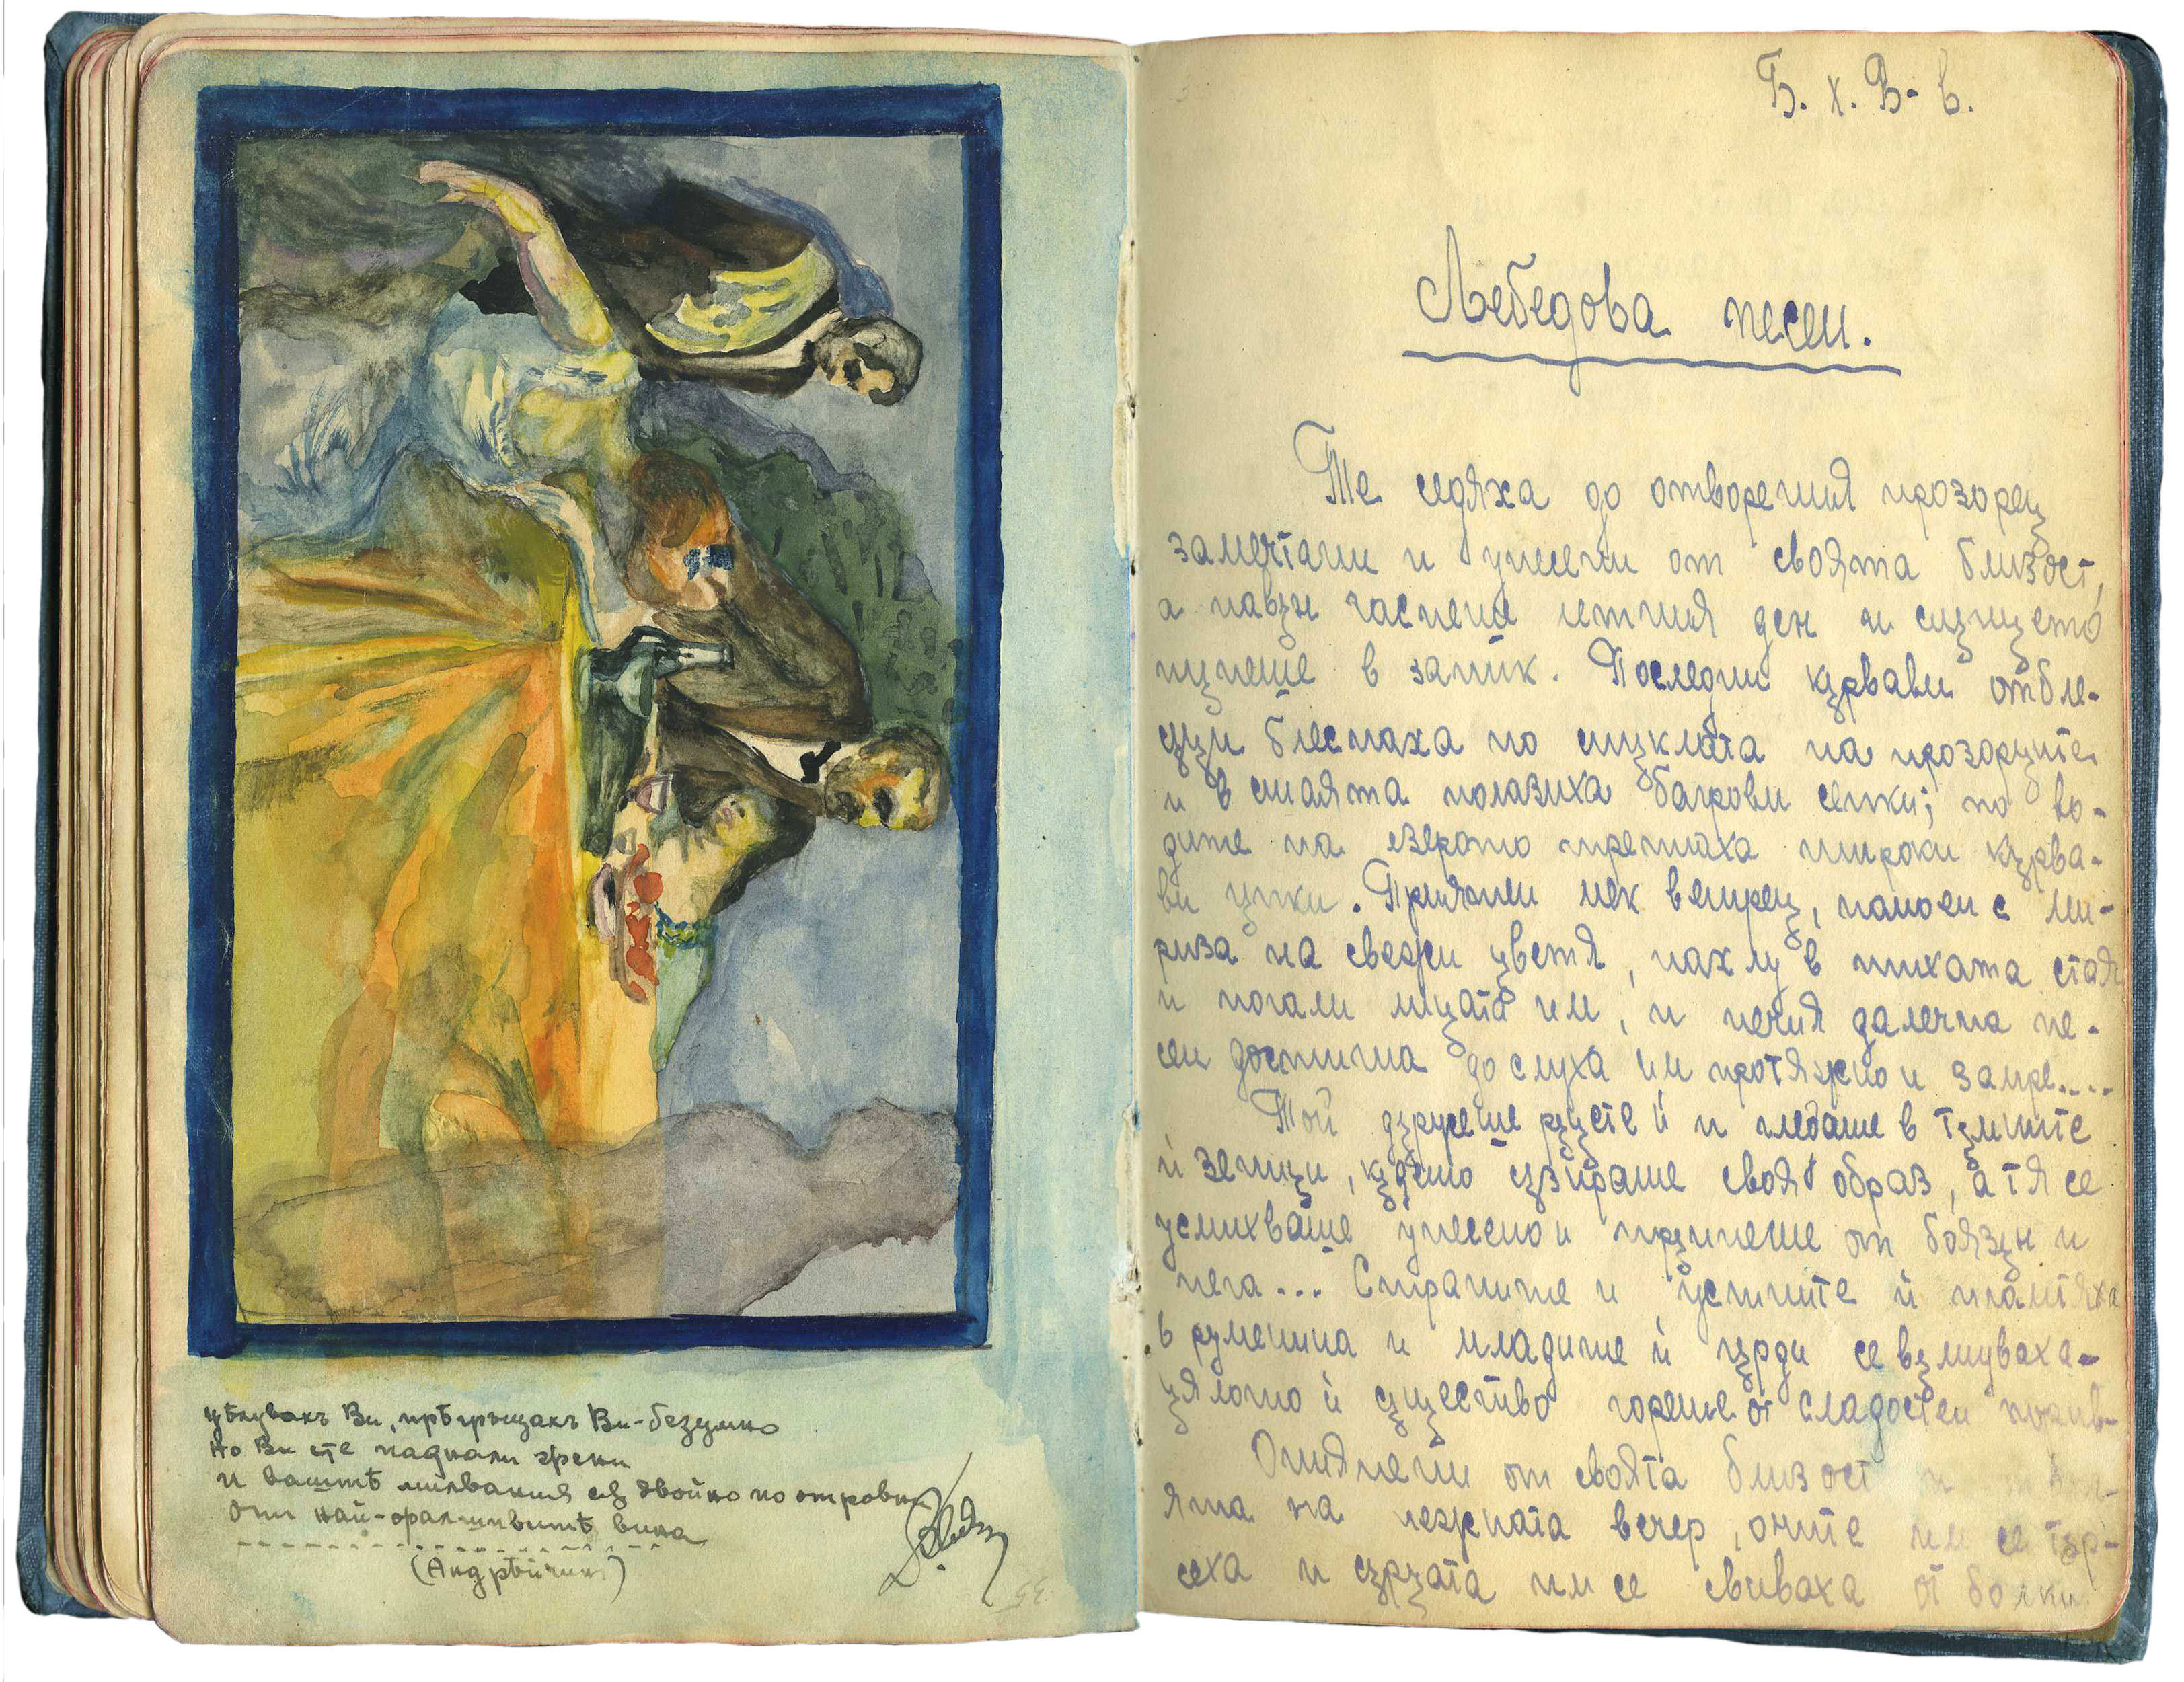 цѣлувахъ Ви, прѣгръщахъ Ви - безумно
но Ви сте паднали жени
и вашитѣ милвания сѫ двойно по отровни
отъ най-фалшивитѣ вина
(Андрѣйчинъ)
Б. х. В-в.
Лебедова песен.
Те седяха до отворения прозорец
замечтани и унесени от своята близост,
а навън гаснеше летния ден и слънцето
гинеше в запик. Последни кървави отбле-
съци блеснаха по стъклата на прозорците
и в стаята полазиха багрови сенки; по во-
дите на езерото трептяха широки кърва-
ви ивици. Приятен лек ветрец, напоен с ми-
риза на свежи цветя, нахлу в тихата стая
и погали лицата им, и нечия далечна пе-
сен достигна до слуха им протяжно и замре....
Той държеше ръцете ѝ и гледаше в тъмните
ѝ зеници, където съзираше своя образ, а тя се
усмихваше унесено и тръпнеше от боязън и
нега... Страните и устните ѝ пламтяха
в руменина и младите ѝ гърди се вълнуваха-
цялото ѝ същество гореше от сладостен
Опиянени от своята близост и
ята на нежната вечер, очите им се тър-
сеха и сърцата им се свиваха от болки